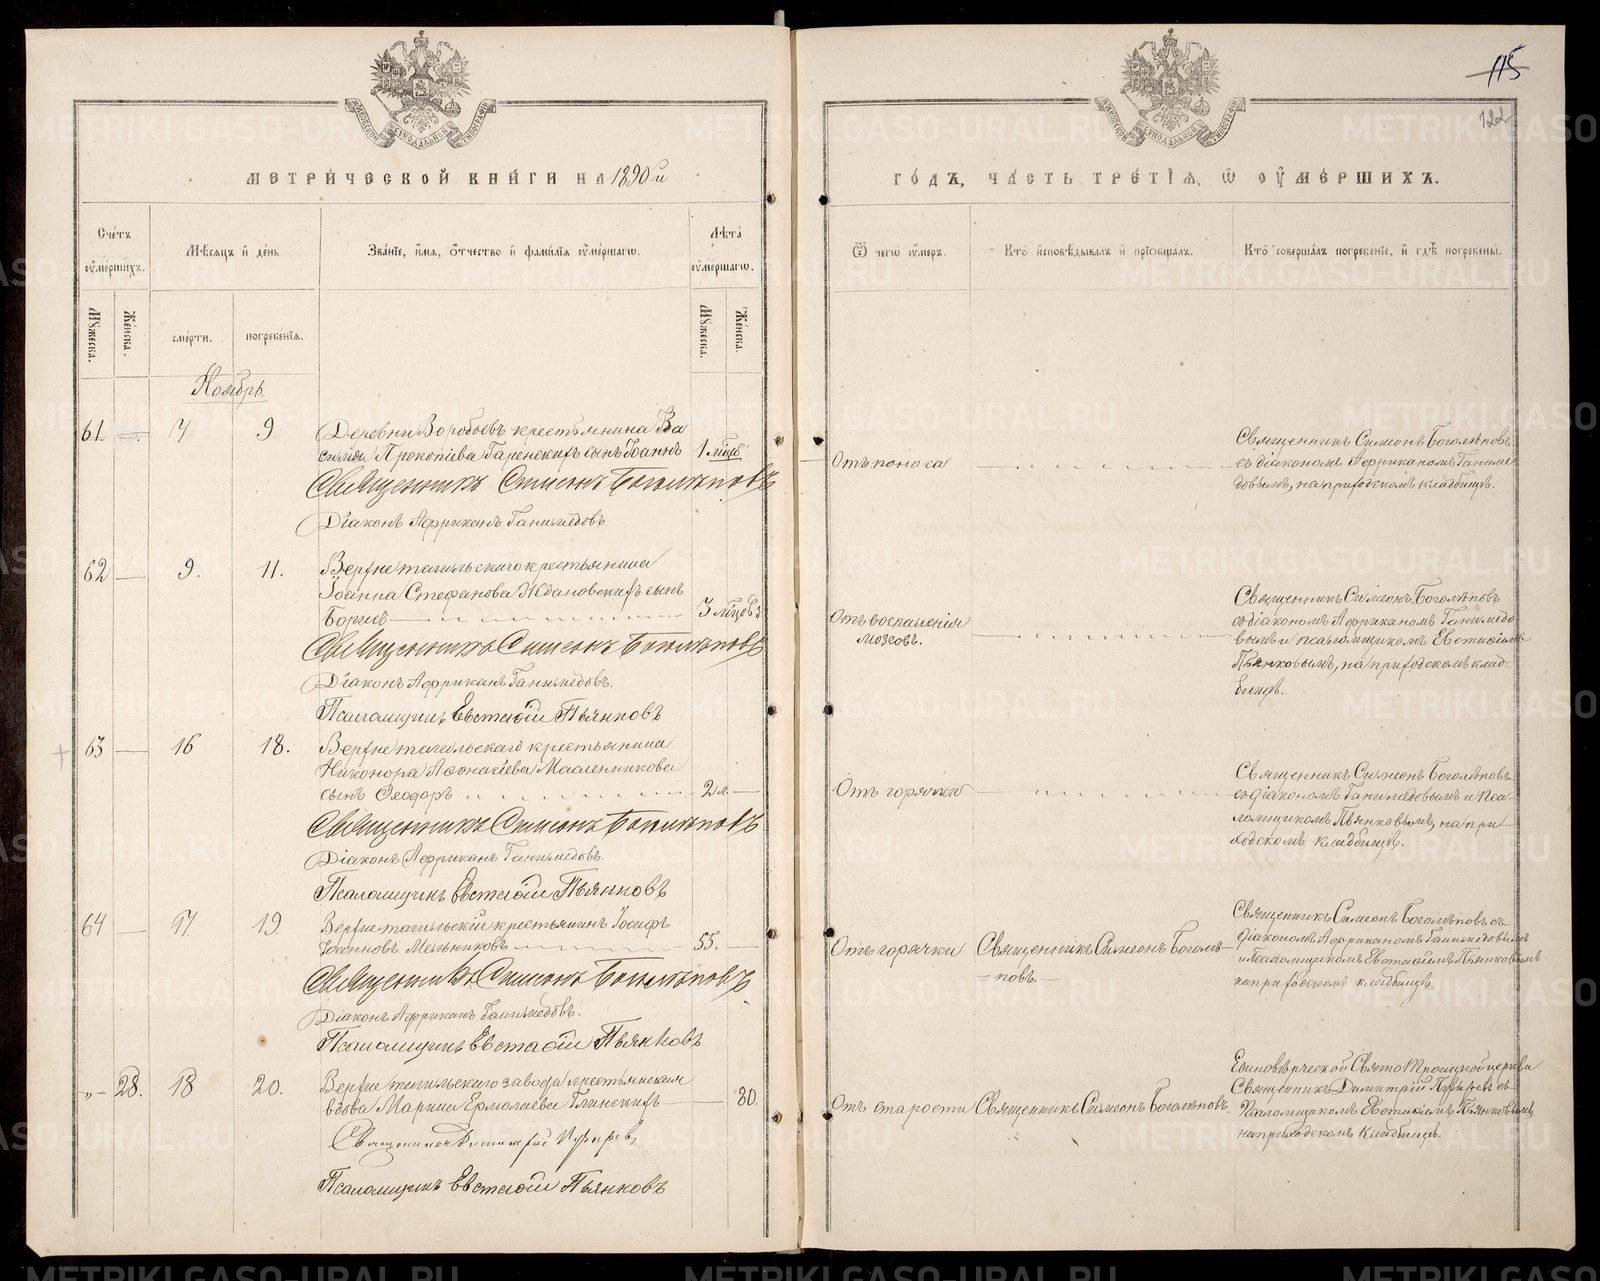 115
122
МЕТРИЧЕСКОЙ КНИГИ НА 1890й
ГОДЪ, ЧАСТЬ ТРЕТІЯ, Ѡ ОУМЕРШИХЪ.
Счетъ оумершихъ.
Мѣсяцъ и день
Званіе, имя, отчество и фамилія оумершагѡ.
Лѣта оумершагѡ.
Ѿ чегѡ оумеръ.
Кто исповѣдывалъ и пріобщалъ.
Кто совершалъ погребеніе, и гдѣ погребены.
Мꙋжеска.
Женска.
смерти.
погребенія.
Мꙋжеска.
Женска.
Ноябрь.
61. 7 9
Деревни Воробьевъ крестьянина Ва
силія Прокопіева Гаренскихъ сынъ Іоаннъ 1 мѣс.
Священникъ Симеонъ Боголѣповъ
Діаконъ Африканъ Ганимедовъ
Отъ поноса
Священникъ Симеонъ Боголѣповъ
съ діакономъ Африканомъ Ганиме
довымъ, на приходскомъ кладбищѣ.
62 9. 11.
Верхнетагильскаго крестьянина
Іоанна Стефанова Ждановскихъ сынъ
Борисъ 3 мѣсцовъ
Священникъ Симеонъ Боголѣповъ
Діаконъ Африканъ Ганимедовъ.
Псаломщикъ Евстафій Пьянковъ
Отъ воспаленія
мозговъ.
Священникъ Симеонъ Боголѣповъ
съ діакономъ Африканомъ Ганимедо
вымъ и псаломщикомъ Евстафіемъ
Пьянковымъ, на приходскомъ клад-
бищѣ.
63 16 18.
Верхнетагильскаго крестьянина
Никонора Аѳонасіева Масленникова
сынъ Ѳеодоръ 2 л.
Священникъ Симеонъ Боголѣповъ
Діаконъ Африканъ Ганимедовъ.
Псаломщикъ Евстафій Пьянковъ
Отъ горячки
Священникъ Симеонъ Боголѣповъ
съ діакономъ Ганимедовымъ и пса-
ломщикомъ Пьянковымъ, на при
ходскомъ кладбищѣ.
64 17 19.
Верхнетагильскій крестьянинъ Іосифъ
Іоанновъ Мельниковъ 55.
Священникъ Симеонъ Боголѣповъ
Діаконъ Африканъ Ганимедовъ.
Псаломщикъ Евстафій Пьянковъ
Отъ горячки
Священникъ Симеонъ Боголѣ-
=повъ.
Священникъ Симеонъ Боголѣповъ съ
діакономъ Африканомъ Ганимедовымъ
и псаломщикомъ Евстафіемъ Пьянковымъ
на приходскомъ кладбищѣ.
„ 28. 18 20.
Верхнетагильскаго завода крестьянская
вдова Марина Ермолаева Глинскихъ 80.
Священникъ Димитрій Пырьевъ
Псаломщикъ Евстафій Пьянковъ
Отъ старости
Священникъ Симеонъ Боголѣповъ.
Единовѣрческой Свято Троицкой церкви
Священникъ Димитрій Пырьевъ съ
псаломщикомъ Евстафіемъ Пьянковымъ
на приходскомъ кладбищѣ.
METRIKI.GASO-URAL.RU